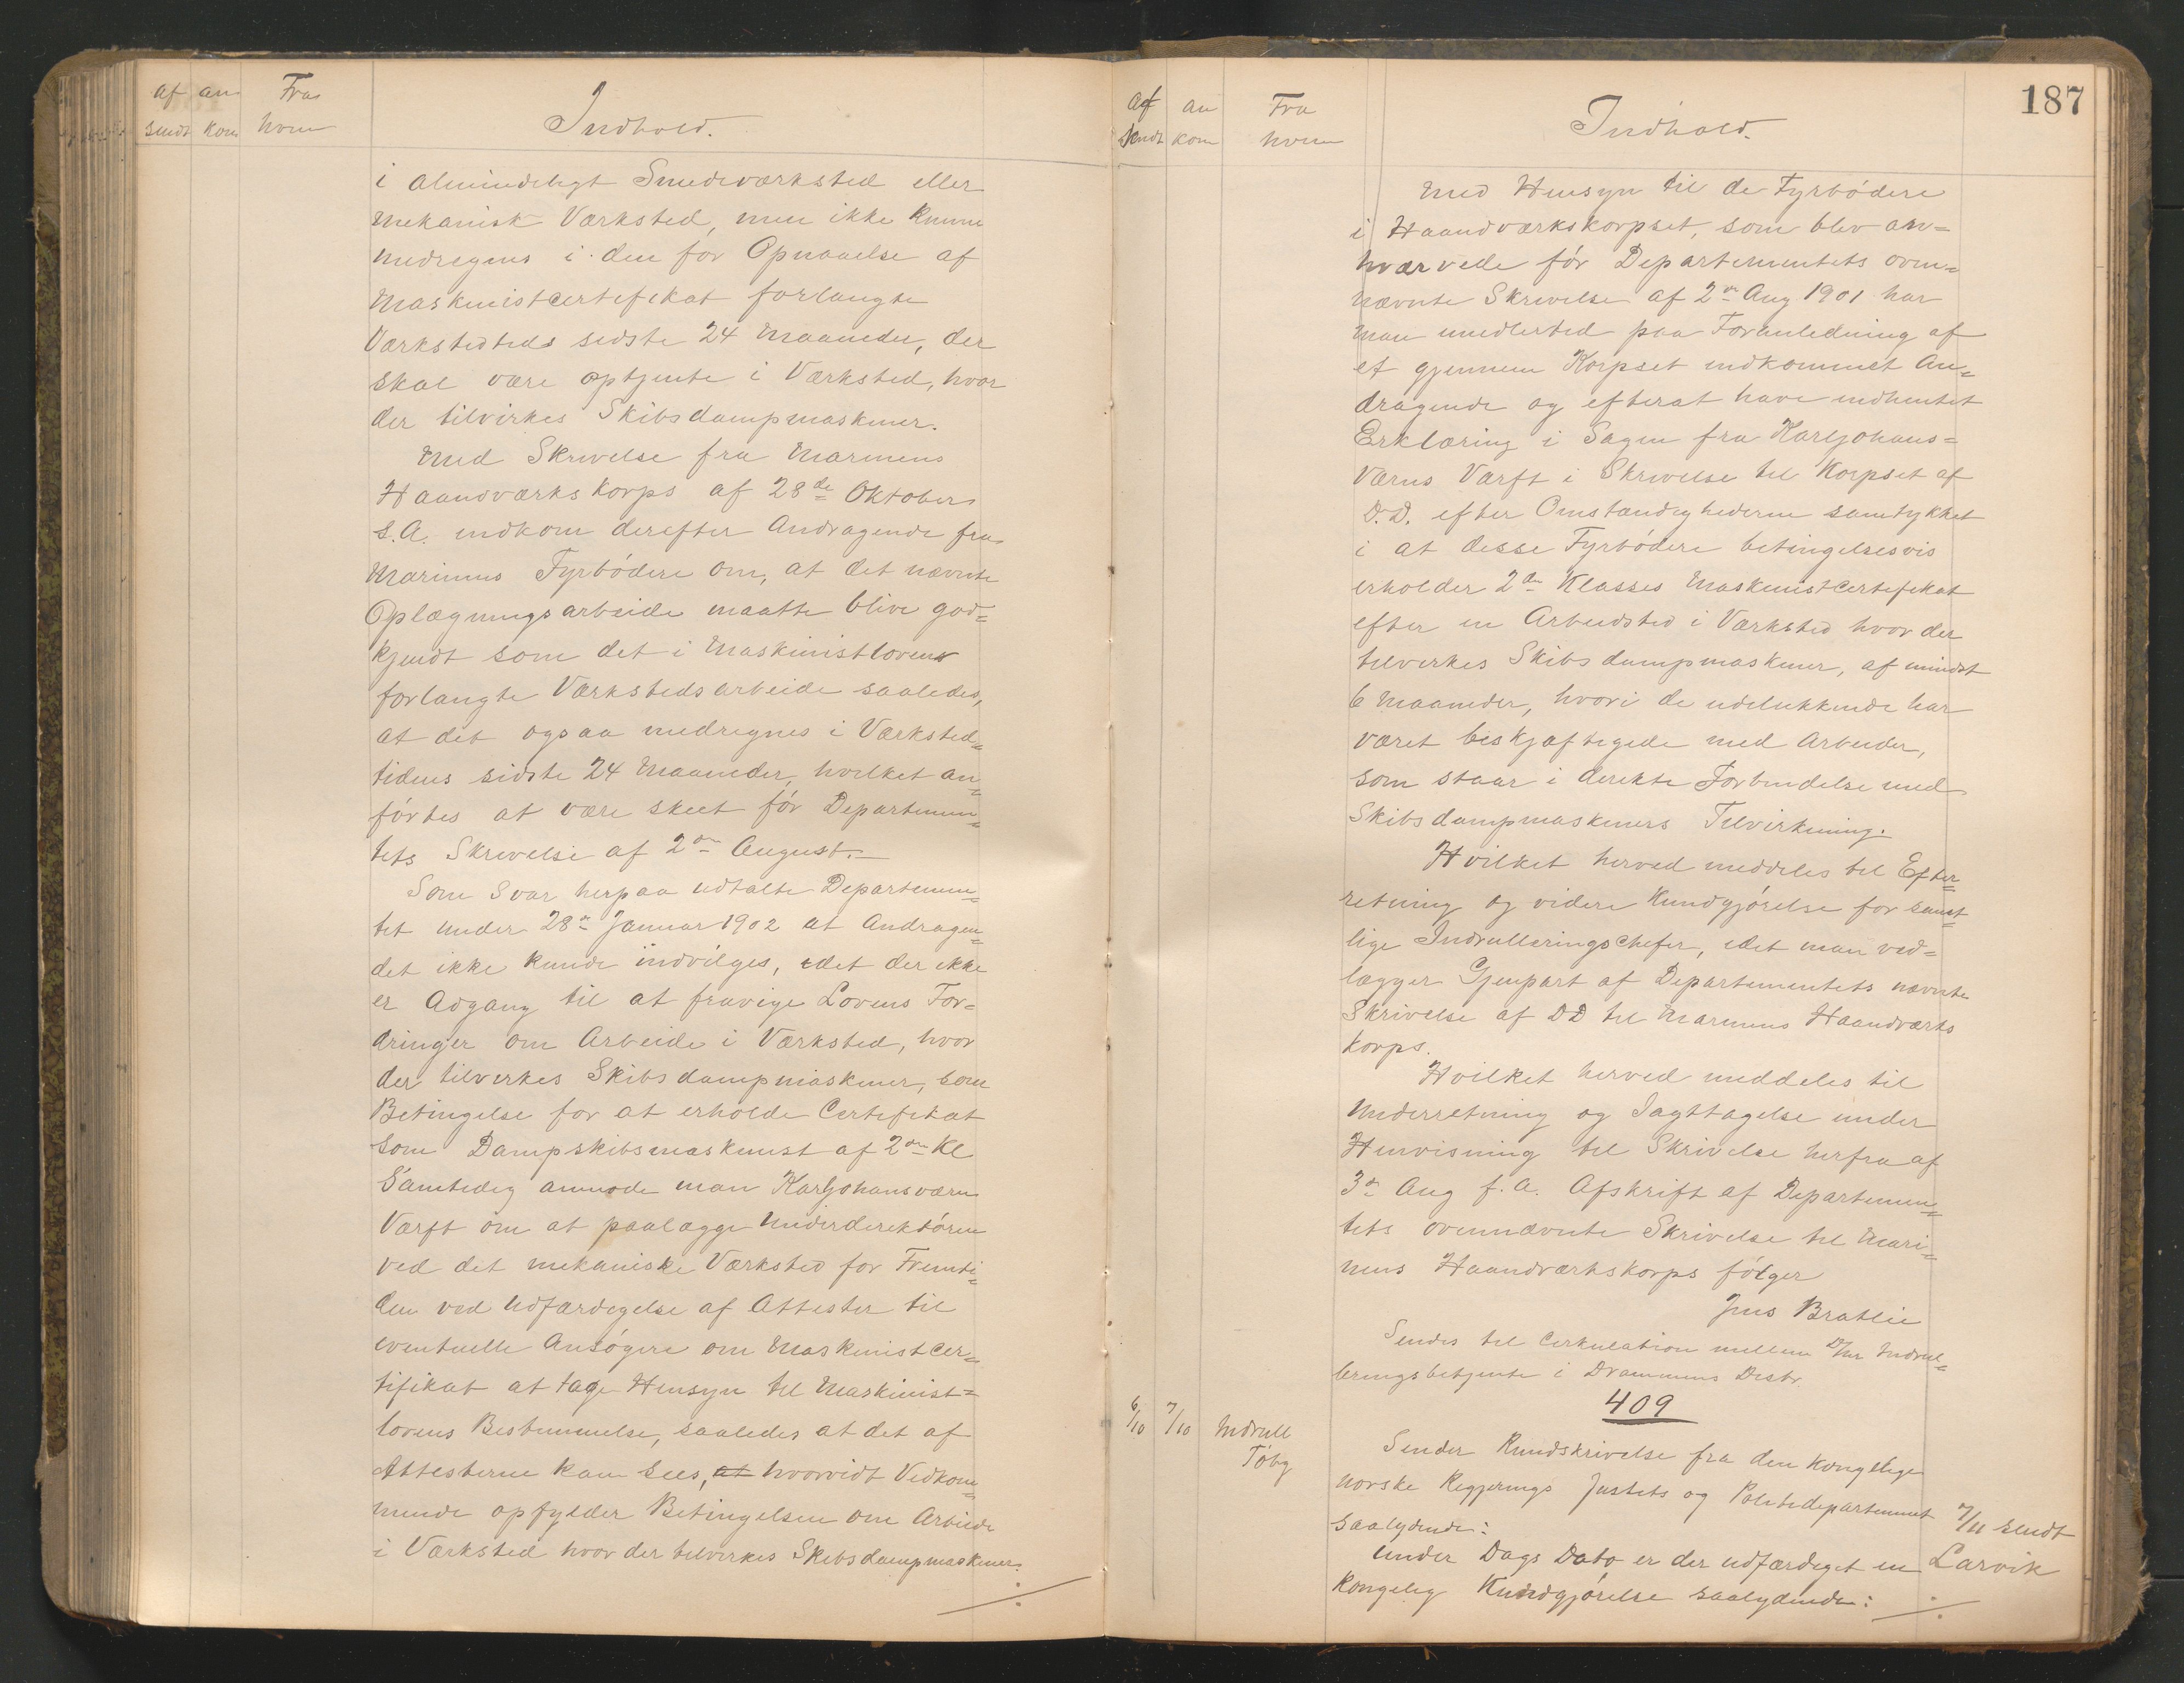 af an Fra
sendt kom hvem Indhold.
i almindeligt Smedeværksted eller
mekanisk Værksted, men ikke kunne
medregnes i den for Opnaaelse af
Maskinistcertifikat forlangte
Værkstedtids sidste 24 Maaneder, der
skal være optjente i Værksted, hvor
der tilvirkes Skibsdampmaskiner.
Med Skrivelse fra Marinens
Haandværkskorps af 28de Oktober
s.A. indkom derefter Andragende fra
Marinens Fyrbødere om, at det nævnte
Oplægningsarbeide maatte blive god=
kjendt som det i Maskinistloven
forlangte Værkstedsarbeide saaledes,
at det ogsaa medregnes i Værksted=
tidens sidste 24 Maaneder, hvilket an=
førtes at være skeet før Departemen=
tets Skrivelse af 2den August.—
Som Svar herpaa udtalte Departemen=
tet under 28de Januar 1902 at Andragen=
det ikke kunde indvilges, idet der ikke
er Adgang til at fravige Lovens For=
dringer om Arbeide i Værksted, hvor
der tilvirkes Skibsdampmaskiner, som
Betingelse for at erholde Certifikat
som Dampskibsmaskinist af 2den Kl
Samtidig anmode man Karljohansværn
Værft om at paalægge Underdirektøren
ved det mekaniske Værksted for Fremti=
den ved Udfærdigelse af Attester til
eventuelle Ansøgere om Maskinistcer=
tifikat at tage Hensyn til Maskinist=
lovens Bestemmelse, saaledes at det af
Attesterne kan sees, at hvorvidt Vedkom=
mende opfylder Betingelsen om Arbeide
i Værksted hvor der tilvirkes Skibsdampmaskiner.
./.
187
Af an Fra
sendt kom hvem Indhold.
Med Hensyn til de Fyrbødere
i Haandværkskorpset, som blev an=
hværvede før Departementets oven=
nævnte Skrivelse af 2den Aug 1901 har
man imedlertid paa Foranledning af
et gjennem Korpset indkommet An=
dragende og efterat have indhentet
Erklæring i Sagen fra Karljohans=
værns Værft i Skrivelse til Korpset af
D.D. efter Omstændighederne samtykket
i at disse Fyrbødere betingelsesvis
erholder 2den Klasses Maskinistcertifikat
efter en Arbeidstid i Værksted hvor der
tilvirkes Skibsdampmaskiner, af mindst
6 Maaneder, hvori de udelukkende har
været beskjæftigede med Arbeider,
som staar i direkte Forbindelse med
Skibsdampmaskiners Tilvirkning.
Hvilket herved meddeles til Efter=
retning og videre Kundgjørelse for samt
lige Indrulleringschefer, idet man ved=
lægger Gjenpart af Departementets nævnte
Skrivelse af DD til Marinens Haandværks
korps.
Hvilket herved meddeles til
Underretning og Iagttagelse under
Henvisning til Skrivelse herfra af
3de Aug f.A. Afskrift af Departemen=
tets ovennævnte Skrivelse til Mari=
nens Haandværkskorps følger
Jens Bratlie
Sendes til Cirkulation mellem Indrul=
leringsbetjente i Drammens Distr.
409
6/10 7/10 Indrull
Tøbg
Sender Rundskrivelse fra den kongelige
norske Regjerings Justits og Politidepartement
saalydende:
7/11 sendt
Larvik
Under Dags Dato er der udfærdiget en
Kongelig Kundgjørelse saalydende:
./.